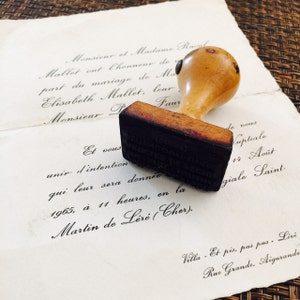 Monsieur et Madame Raoul
Mallet ont l'honneur de
part du mariage de M
Elisabeth Mallet, leur
Monsieur
Et vous
unir d'intention nuptiale
qui leur sera donnée 14 Août
1965, à 11 heures, en la Collégiale Saint-
Martin de Léré (Cher).
Villa "Et pis, pas pus" Léré
Rue Grande, Aigurande